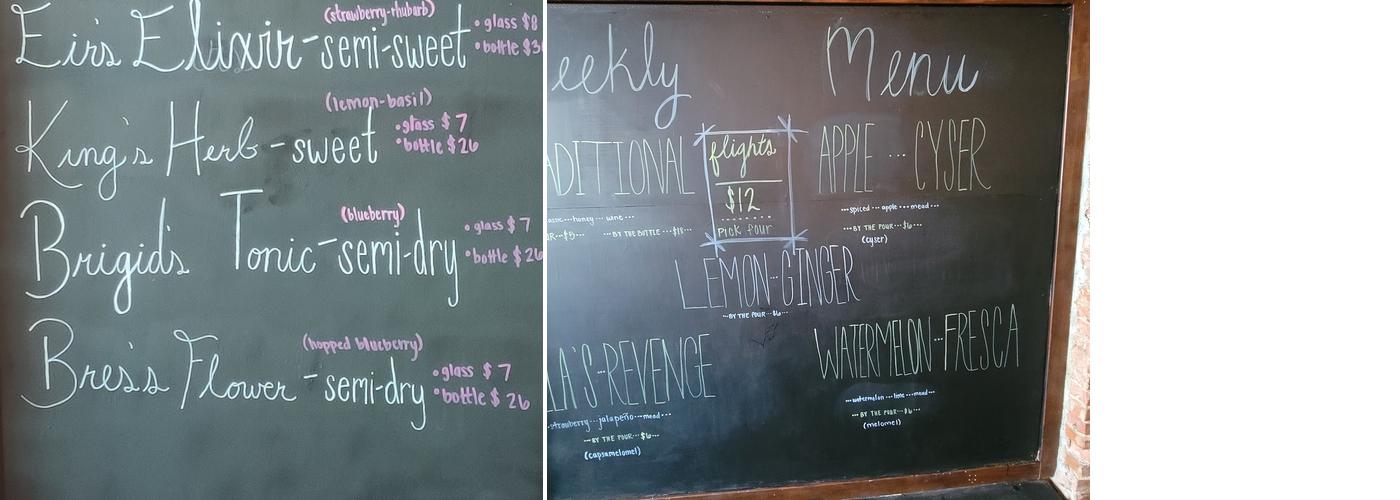 (strawberry-rhubarb)
Eir's Elixir-semi-sweet
• glass $8
• bottle
(lemon-basil)
King's Herb-sweet
• glass $7
• bottle $26
(blueberry)
Brigid's Tonic-semi-dry
• glass $7
• bottle $26
(hopped blueberry)
Bres's Flower-semi-dry
• glass $7
• bottle $26
eekly Menu
ADITIONAL
honey --- wine ---
--- BY THE BOTTLE --- $18---
flights
$12
pick four
APPLE ---- CYSER
---spiced --- apple --- mead---
--- BY THE POUR --- $6---
(cyser)
LEMON---GINGER
--- BY THE POUR --- $6---
LA'S---REVENGE
strawberry---jalapeño---mead---
--- BY THE POUR --- $6---
(capsamelomel)
WATERMELON---FRESCA
---watermelon --- lime ---mead---
--- BY THE POUR --- $6---
(melomel)